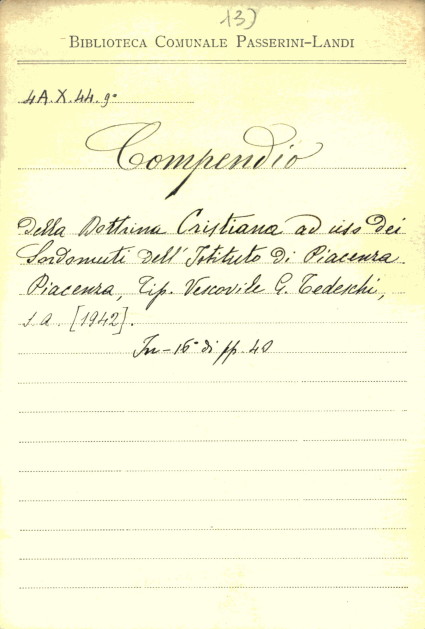 13)
BIBLIOTECA COMUNALE PASSERINI-LANDI
4A.X.44.9°
Compendio
della Dottrina Cristiana ad uso dei
Sordomuti dell'Istituto di Piacenza.
Piacenza, Tip. Vescovile G. Tedeschi,
s.a. [1942].
In-16° di pp. 40